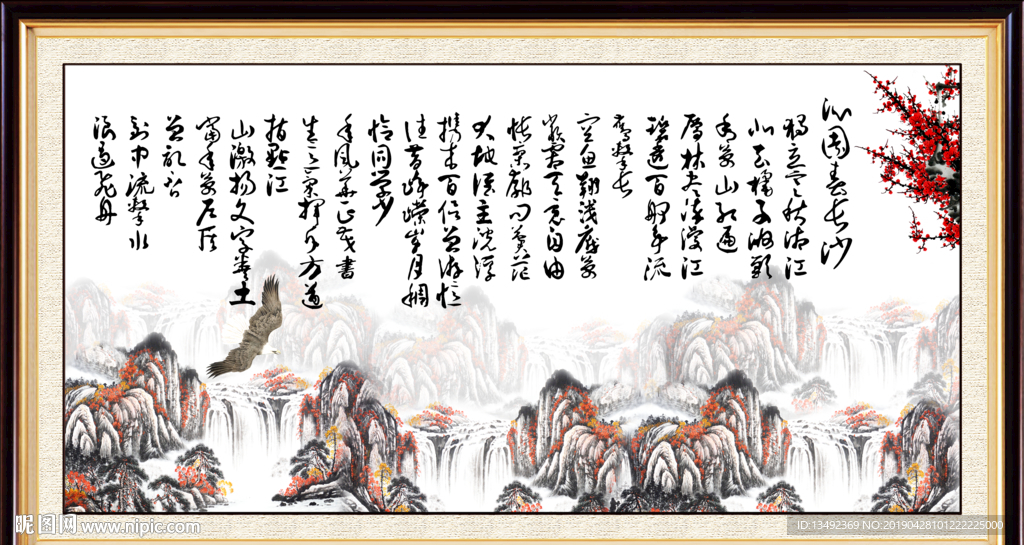 沁园春长沙
独立寒秋湘江
北去橘子洲头
看万山红遍
层林尽染漫江
碧透百舸争流
鹰擊长
空鱼翔浅底万
类霜天竞自由
怅寥廓问苍茫
大地谁主沉浮
携来百侣曾游忆
往昔峥嵘岁月稠
恰同学少
年风华正茂书
生意气挥斥方遒
指點江
山激扬文字粪土
当年万户侯
曾记否
到中流擊水
浪遏飞舟
昵图网 www.nipic.com
ID:13492369 NO:20190428101222225000